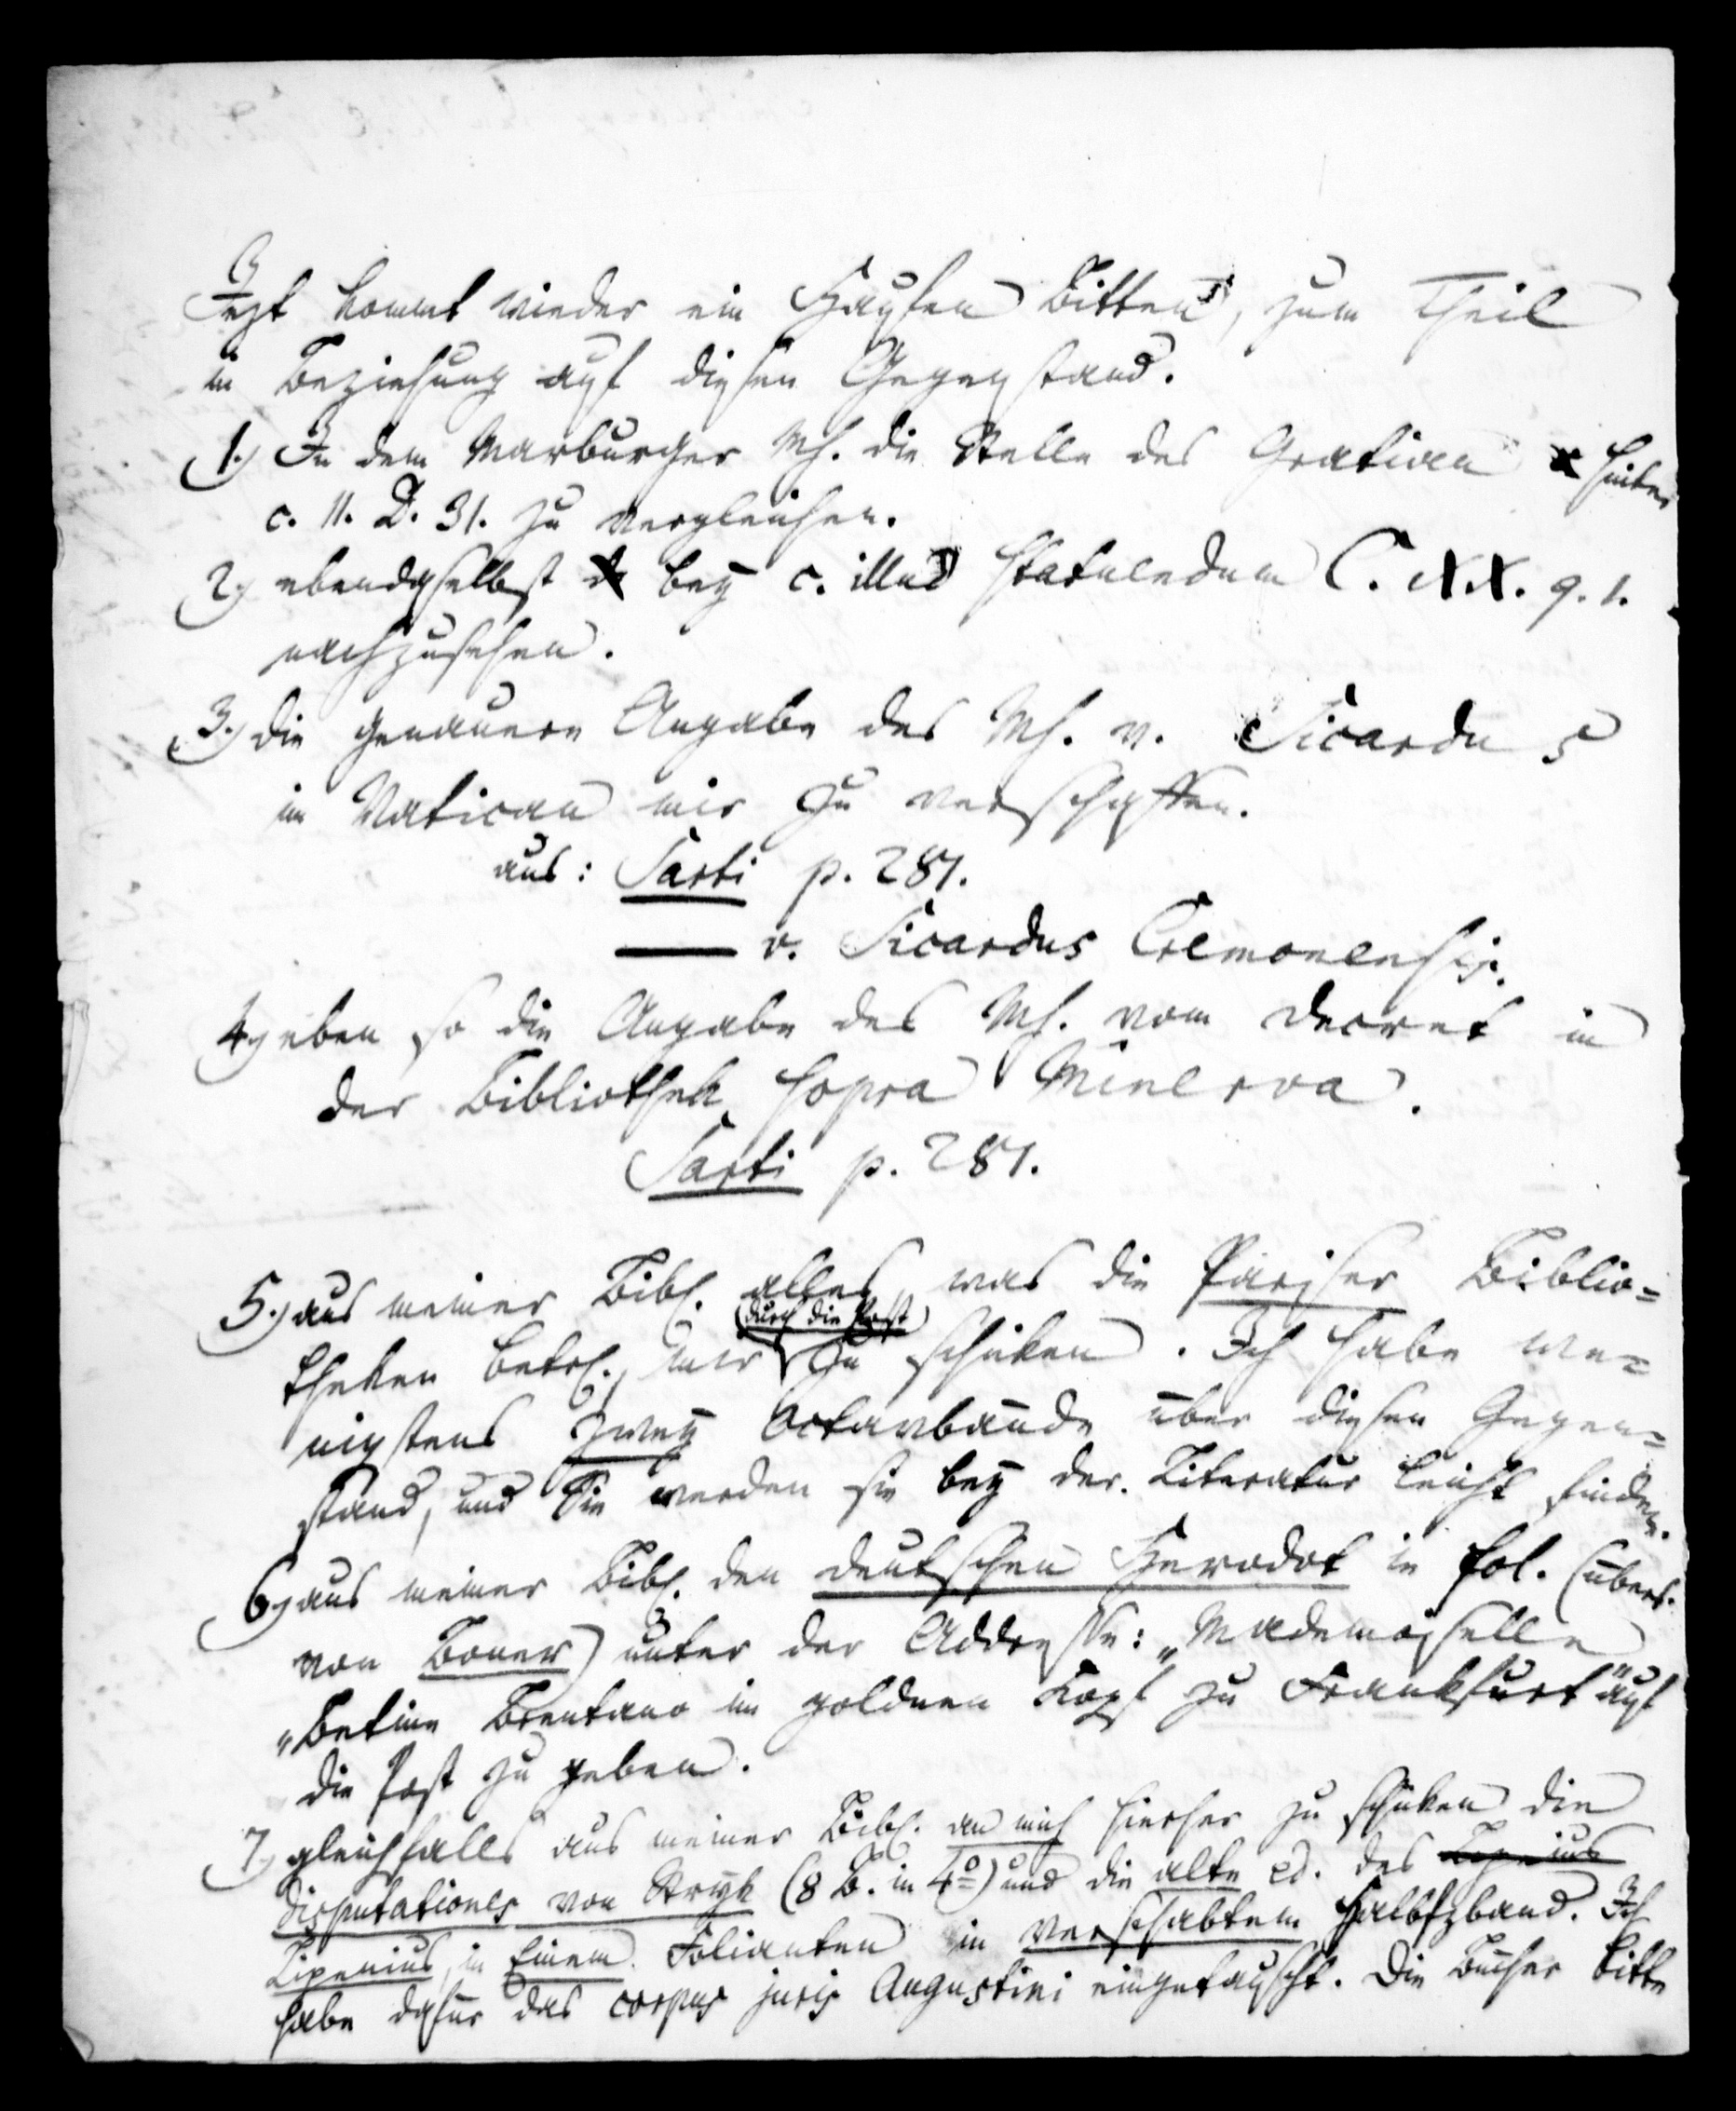 Jezt kommt wieder ein Haufen Bitten, zum Theil
in Beziehung auf diesen Gegenstand.
1.) In dem Marburger Ms. die Stelle des Gratian hinter
c. 11. D. 31. zu vergleichen.
2.) ebendaselbst bey c. illud statuendum C. XX. q. 1.
nachzusehen.
3.) die genauere Angabe des Ms. v. Sicardus
im Vatican mir zu verschaffen.
aus: Sarti p. 287.
— v. Sicardus Cremonensis.
4.) eben so die Angabe des Ms. vom Decret in
der Bibliothek sopra Minerva.
Sarti p. 281.
5.) aus meiner Bibl. alles, was die Pariser Biblio=
(durch die Post)
theken betrf., mir zu schicken. Ich habe we=
nigstens zwey Octavbände über diesen Gegen=
stand, und Sie werden sie bey der Literatur leicht finden.
6.) aus meiner Bibl. den deutschen Herodot in fol. (übers.
von Boner) unter der Addresse: „Mademoiselle
„Betine Brentano im goldnen Kopf zu Frankfurt" auf
die Post zu geben.
7.) gleichfalls aus meiner Bibl. an mich hierher zu schicken die
disputationes von Stryk (8 B. in 4°) und die alte ed. des Lipenius
Lipenius, in Einem Folianten in verschabtem Halbfzband. Ich
habe dafür das corpus juris Augustini eingetauscht. Die Bücher bitte